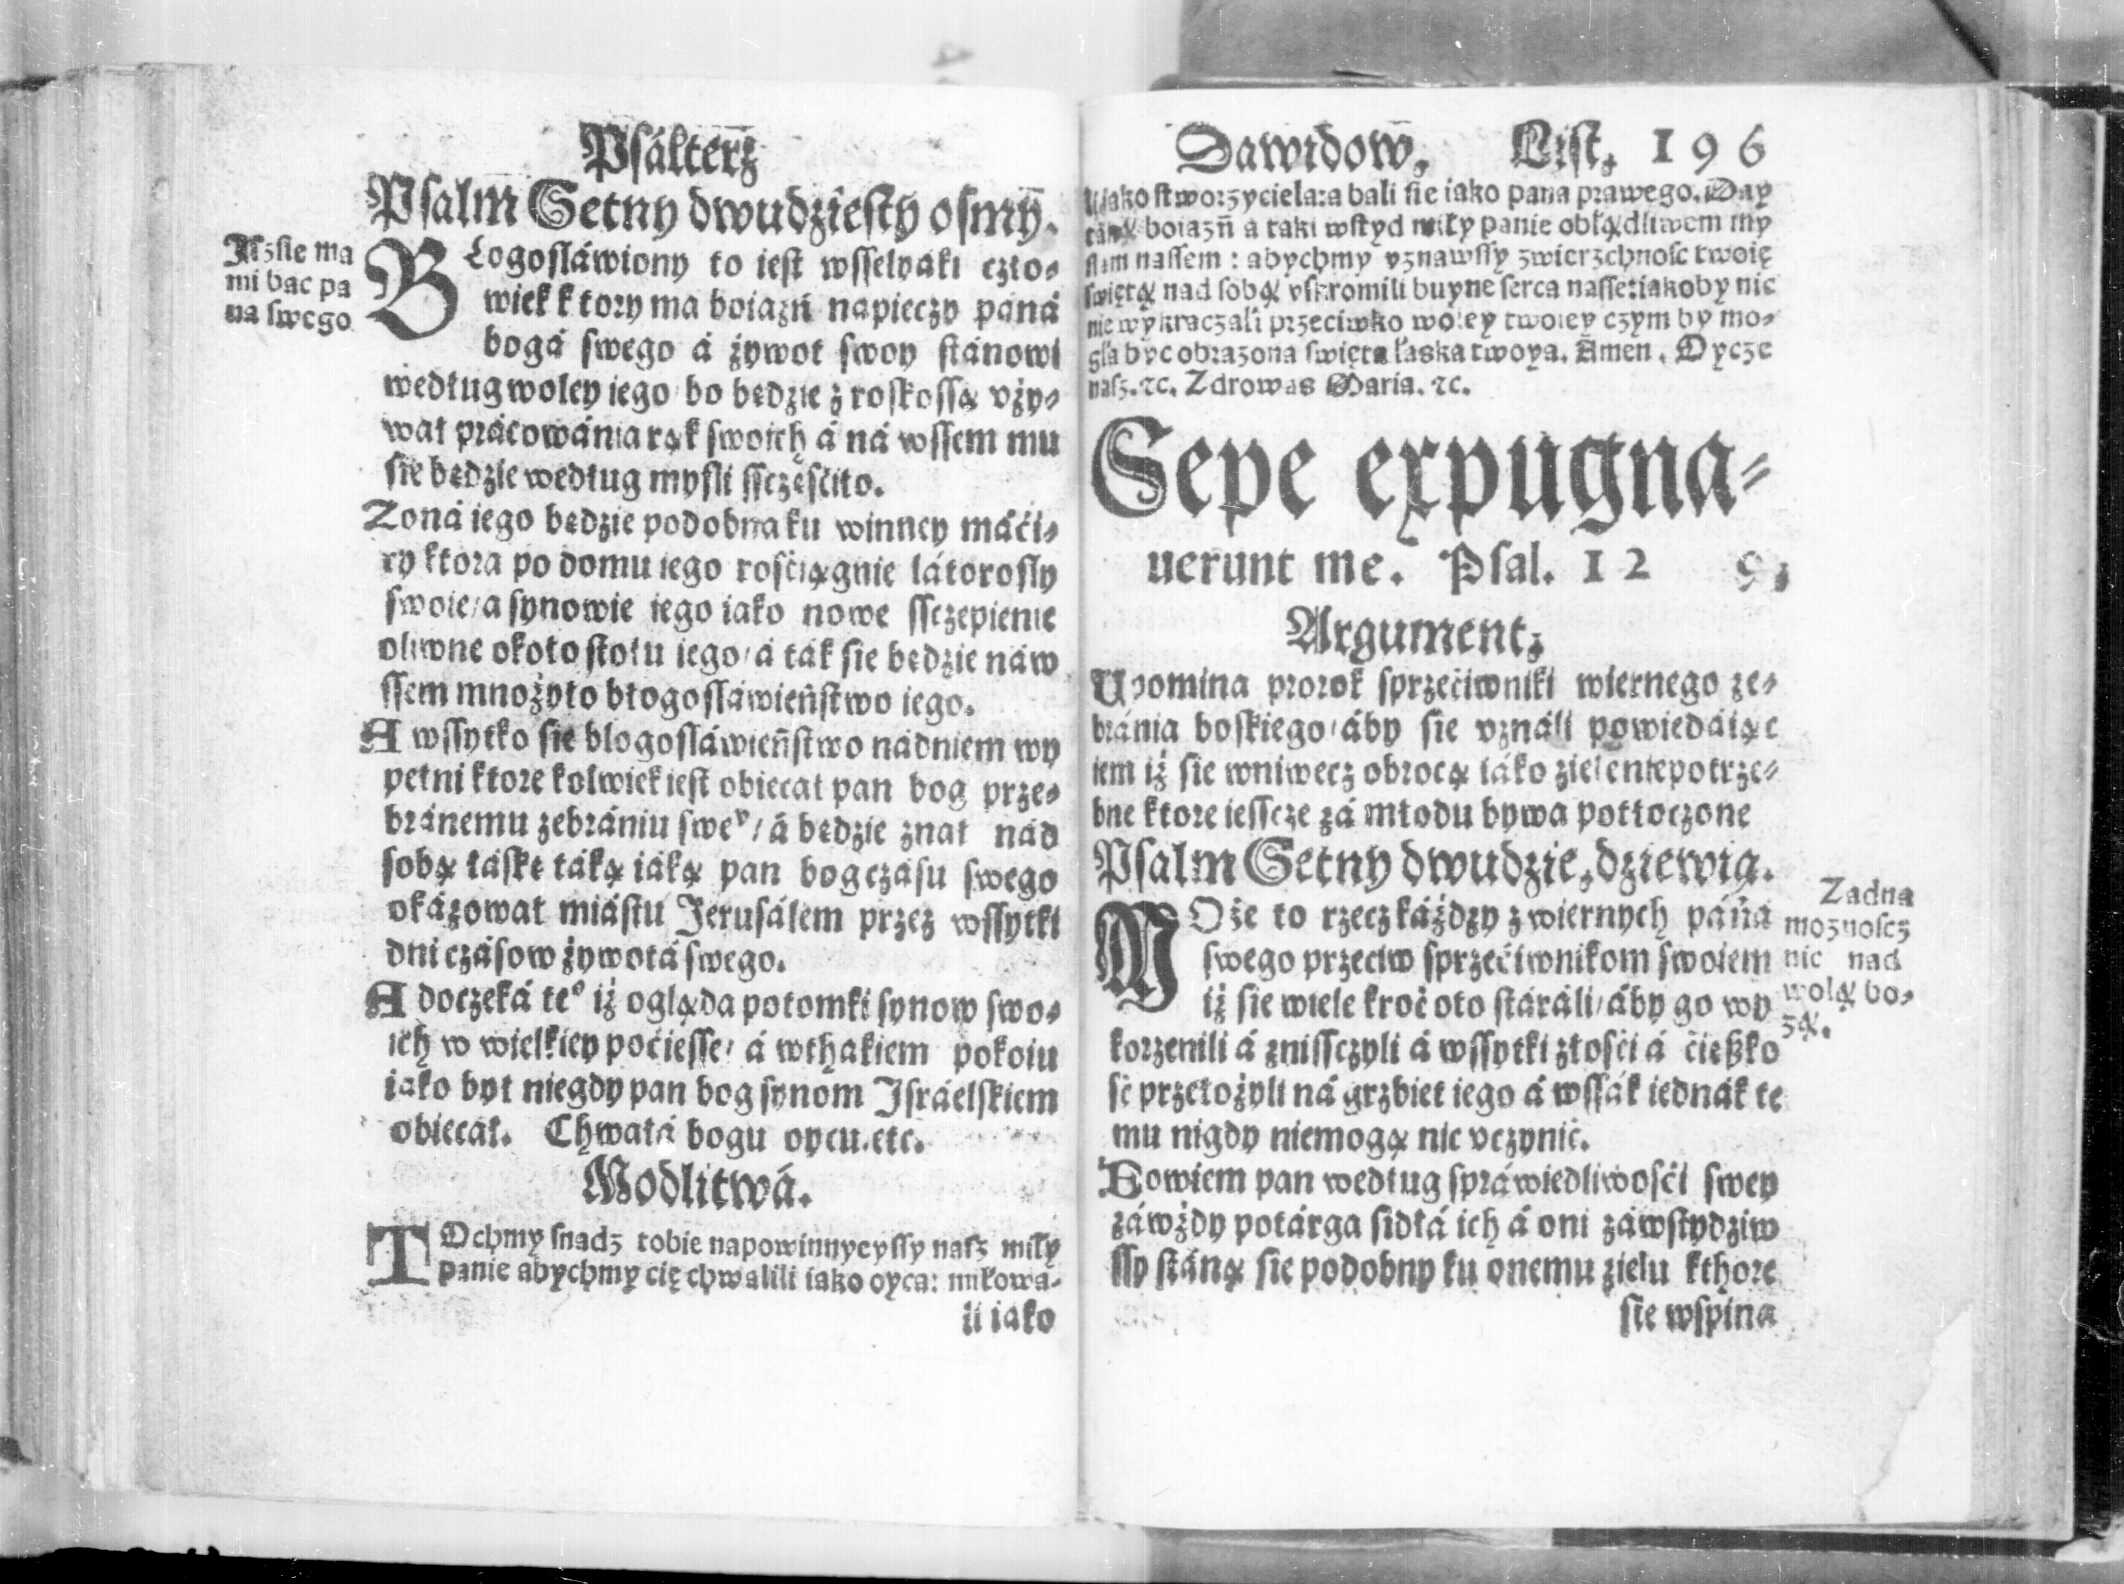 Psálterz̄
Psalm̄ Setny dwudziesty osmȳ.
Jżsie ma
mi bac pa
na swego
BŁogosłáwiony to iest wsselyaki czło-
wiek ktory ma boiazń napieczy páná
bogá swego á żywot swoy stánowi
według woley iego bo będzie z roskossą vży-
wał prácowánia rąk swoich á ná wssem mu
sie będzie według mysli ssczęśćiło.
Zoná iego będzie podobna ku winney máći-
ry ktora po domu iego rośćiągnie látorosly
swoie/a synowie iego iako nowe ssczepienie
oliwne około stołu iego/á ták sie będzie náw
ssem mnożyło błogosłáwieństwo iego.
A wssytko sie blogosłáwieństwo nádniem wy
pełni ktore kolwiek iest obiecał pan bog prze-
bránemu zebrániu sweᵛ/á będzie znał nád
sobą łáskę táką iáką pan bog czásu swego
okázował miástu Jerusálem przez wssytki
dni czásow żywotá swego.
A doczeká teᵒ iż ogląda potomki synow swo-
ich w wielkiey poćiesse/ á wthakiem pokoiu
iako był niegdy pan bog synom Jsráelskiem
obiecał. Chwałá bogu oycu.etc.
Modlitwá.
TOchmy snadz tobie napowinnyeyssy nasz miły
panie abychmy cię chwalili iako oyca: miłowa-
li iako
Dawidow̄, List, 196
li iako stworzyciela:a bali sie iako pana prawego. Day
taką boiazń a taki wstyd miły panie obłądliwem my
slam nassem: abychmy vznawssy zwierzchnosc twoię
swiętą nad sobą vskromili buyne serca nasse:iakoby nic
nie wykraczali przeciwko woley twoiey czym by mo-
gła byc obrazona swięta łaska twoya. Amen. Oycze
nasz. ⁊c. Zdrowas Maria. ⁊c.
Sepe expugna-
uerunt me. Psal. 12 9,
Argument,
Upomina prorok sprzećiwniki wiernego ze-
bránia boskiego/áby sie vználi powiedáiąc
iem iż sie wniwecz obrocą iáko ziele niepotrze-
bne ktore iesscze zá młodu bywa potłoczone
Psalm Setny dwudzie, dziewią.
MOże to rzecz káżdzy z wiernych páńa
swego przeciw sprzećiwnikom swoiem
iż sie wiele kroć oto stáráli/áby go wy
korzenili á znissczyli á wssytki złośći á ćięszko
sć przełożyli ná grzbiet iego á wssák iednák te
mu nigdy niemogą nic vczynić.
Bowiem pan według spráwiedliwośći swey
záwżdy potárga sidłá ich á oni záwstydziw
ssy stáną sie podobny ku onemu zielu kthore
sie wspina
Zadna
moznoscz
nic nad
wolą bo-
zą.